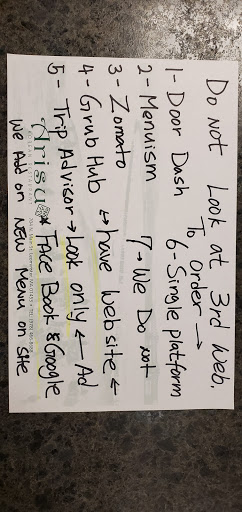 Do not Look at 3rd web.
To order →
1- Door Dash 6- Single platform
2- Menuism 7→ We Do not
3- Zomato ↔ have website ←
4- Grub Hub
5- Trip Advisor → Look only ← Ad
Arisu * Face Book & Google
We Add on NEW Menu on site